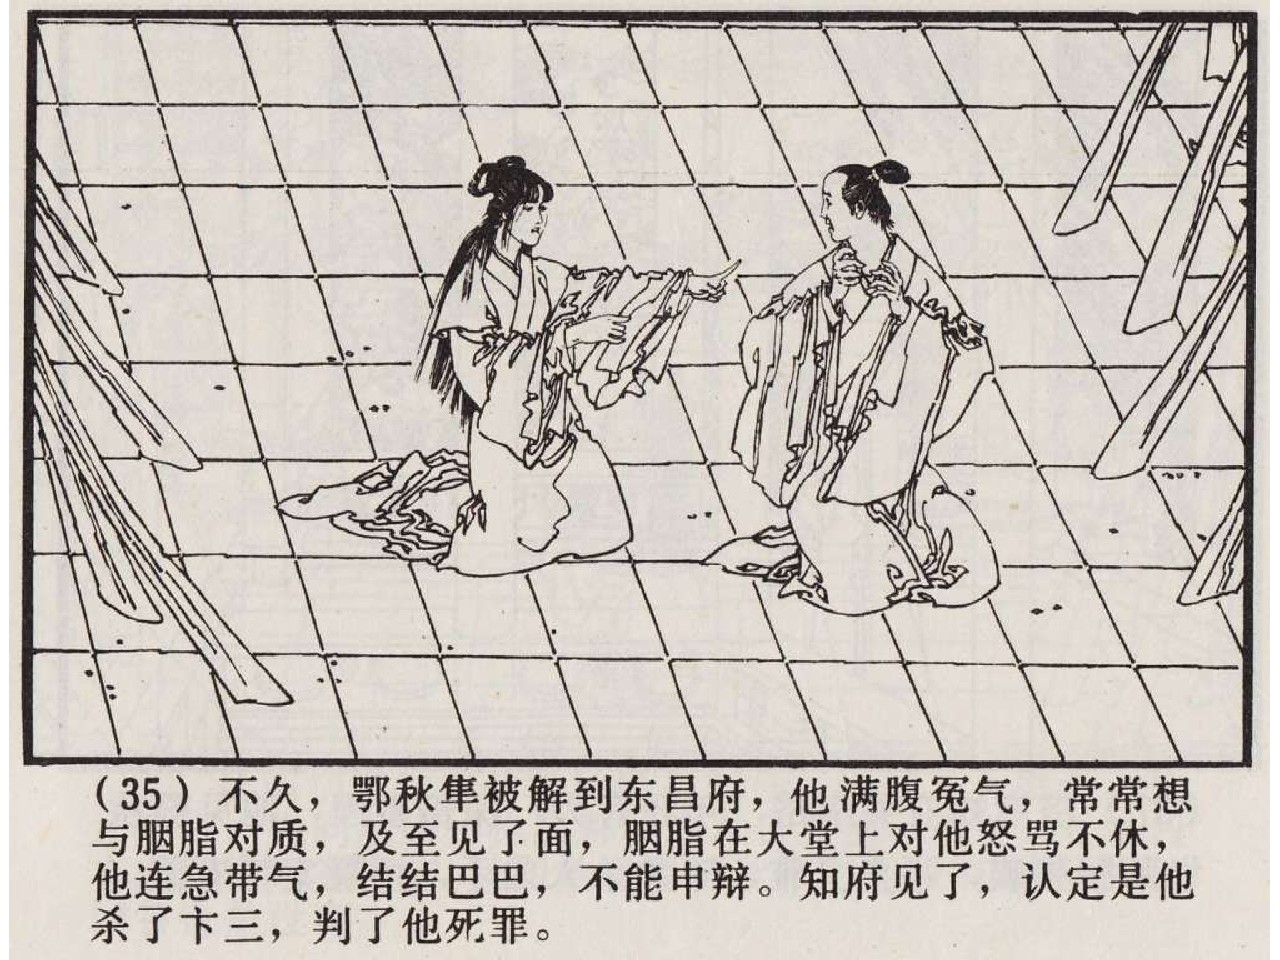 （35）不久，鄂秋隼被解到东昌府，他满腹冤气，常常想
与胭脂对质，及至见了面，胭脂在大堂上对他怒骂不休，
他连急带气，结结巴巴，不能申辩。知府见了，认定是他
杀了卞三，判了他死罪。